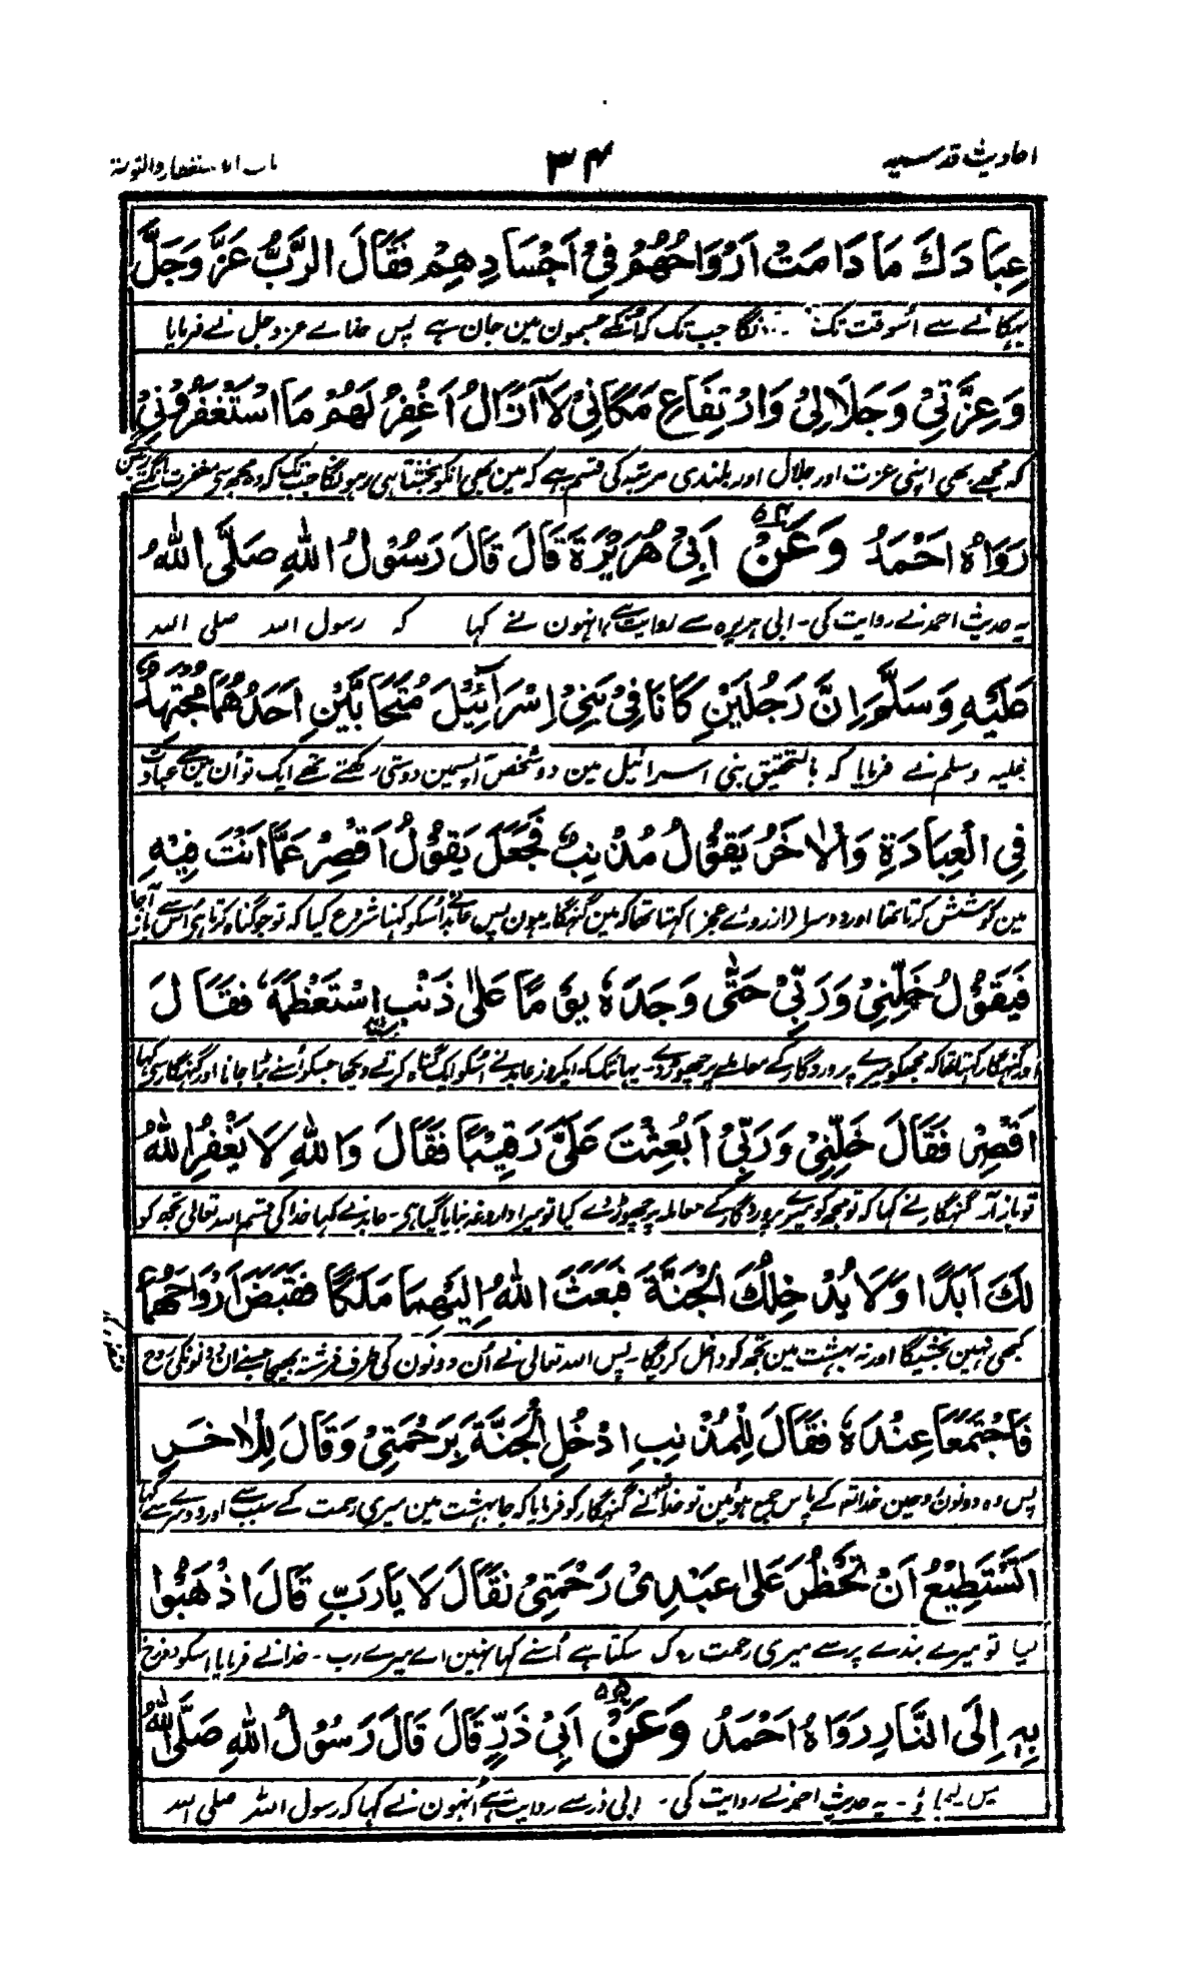 احادیث قدسیہ
۳۴
باب الاستغفار والتوبۃ
عِبَادَكَ مَا دَامَتْ اَرْوَاحُهُمْ فِیْ اَجْسَادِهِمْ فَقَالَ الرَّبُّ عَزَّ وَجَلَّ
بہکانے سے اُسوقت تک جب تک کہ اُنکے جسمون مین جان ہے پس خدائے عزوجل نے فرمایا
وَعِزَّتِیْ وَجَلَالِیْ وَارْتِفَاعِ مَكَانِیْ لَاۤ اَزَالُ اَغْفِرُ لَهُمْ مَا اسْتَغْفَرُوْنِیْ
کہ مجھے بھی اپنی عزت اور جلال اور بلندی مرتبہ کی قسم ہے کہ مین بھی انکو بخشتا ہی رہونگا جب تک کہ وہ مجھ سے مغفرت مانگتے رہینگے
رَوَاهُ اَحْمَدُ وَعَنْ ۵۴ اَبِیْ هُرَیْرَةَ قَالَ قَالَ رَسُوْلُ اللهِ صَلَّی اللهُ
یہ حدیث احمد نے روایت کی۔ ابی ہریرہ سے روایت ہے انہون نے کہا کہ رسول اللہ صلی اللہ
عَلَیْهِ وَسَلَّمَ اِنَّ رَجُلَیْنِ كَانَا فِیْ بَنِیْ اِسْرَآئِیْلَ مُتَحَابَّیْنِ اَحَدُهُمَا مُجْتَهِدٌ
علیہ وسلم نے فرمایا کہ بالتحقیق بنی اسرائیل مین دو شخص آپسمین دوستی رکھتے تھے ایک تو اُن مین سے عبادت
فِی الْعِبَادَةِ وَالْاٰخَرُ یَقُوْلُ مُذْنِبٌ فَجَعَلَ یَقُوْلُ اَقْصِرْ عَمَّا اَنْتَ فِیْهِ
مین کوشش کرتا تھا اور دوسرا (ازروے عجز) کہتا تھا کہ مین گنہگار ہون پس عابد نے اُسکو کہنا شروع کیا کہ تو جو گناہ کرتا ہی اُس سے باز آجا
فَیَقُوْلُ خَلِّنِیْ وَرَبِّیْ حَتّٰی وَجَدَهٗ یَوْمًا عَلٰی ذَنْبٍ اِسْتَعْظَمَهٗ فَقَالَ
اور گنہگار کہتا تھا کہ مجھکو میرے پروردگار کے معاملے پر چھوڑ دے۔ یہانتک کہ ایکروز عابد نے اُسکو ایک گناہ کرتے دیکھا جسکو اُسنے بڑا جانا اور گنہگار سے کہا
اَقْصِرْ فَقَالَ خَلِّنِیْ وَرَبِّیْ اَبُعِثْتَ عَلَیَّ رَقِیْبًا فَقَالَ وَاللهِ لَا یَغْفِرُ اللهُ
تو باز آ۔ گنہگار نے کہا کہ تو مجھکو میرے پروردگار کے معاملہ پر چھوڑ دے کیا تو میرا داروغہ بنایا گیا ہی۔ عابد نے کہا خدا کی قسم اللہ تعالی تجھ کو
لَكَ اَبَدًا وَلَا یُدْخِلُكَ الْجَنَّةَ فَبَعَثَ اللهُ اِلَیْهِمَا مَلَكًا فَقَبَضَ اَرْوَاحَهُمَا
کبھی نہین بخشیگا اور نہ بہشت مین تجھ کو داخل کریگا۔ پس اللہ تعالی نے اُن دونون کی طرف فرشتہ بھیجا جسنے ان دونونکی روح
فَاجْتَمَعَا عِنْدَهٗ فَقَالَ لِلْمُذْنِبِ ادْخُلِ الْجَنَّةَ بِرَحْمَتِیْ وَقَالَ لِلْاٰخَرِ
پس وہ دونون روحین خدا کے پاس جمع ہوئین تو خدا نے گنہگار کو فرمایا کہ جا بہشت مین میری رحمت کے سبب سے اور دوسرے سے کہا
اَتَسْتَطِیْعُ اَنْ تَحْظُرَ عَلٰی عَبْدِیْ رَحْمَتِیْ فَقَالَ لَا یَا رَبِّ قَالَ اذْهَبُوْا
کیا تو میرے بندے پر سے میری رحمت روک سکتا ہے اُسنے کہا نہین اے میرے رب۔ خدا نے فرمایا اسکو دوزخ
بِهٖ اِلَی النَّارِ رَوَاهُ اَحْمَدُ وَعَنْ ۵۵ اَبِیْ ذَرٍّ قَالَ قَالَ رَسُوْلُ اللهِ صَلَّی اللهُ
مین لیجاؤ۔ یہ حدیث احمد نے روایت کی۔ ابی ذر سے روایت ہے اُنہون نے کہا کہ رسول اللہ صلی اللہ